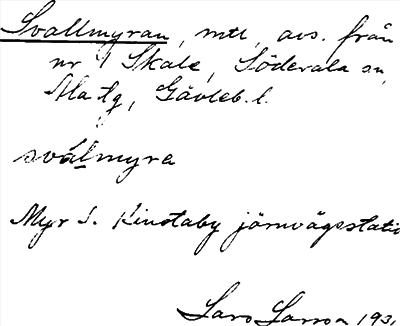 Svallmyran, mtl, avs. från
nr 1 Skale, Söderala sn,
Ala tg, Gävleb. l.
svålmyra
Myr S. Kinstaby järnvägsstatio
Lars Larson 193